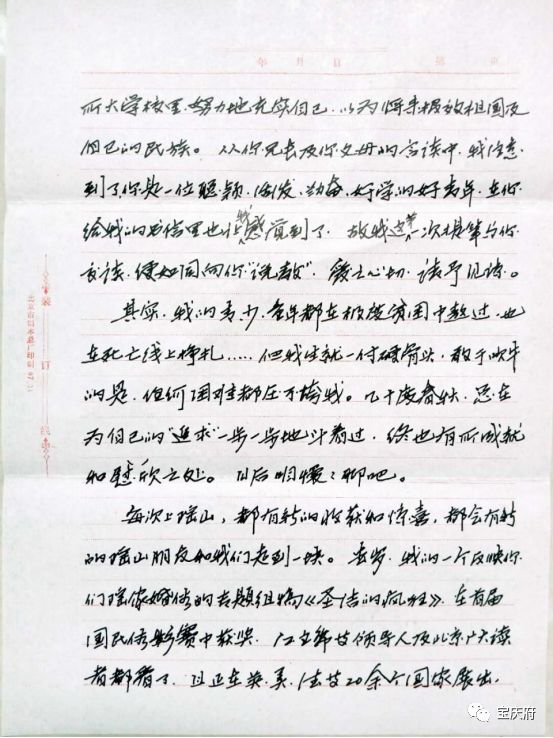 年 月 日 第 页
所大学校里,努力地充实自己,以为将来报效祖国及
自己的民族。从你兄长及你父母的言谈中,我注意
到了你是一位聪颖、活泼、勤奋、好学的好青年,在你
给我的书信里也让我感觉到了。故我这第一次提笔与你
交谈,便如同向你"说教",爱之心切,请予见谅。
其实,我的青少年都在极度贫困中熬过,也
在死亡线上挣扎……但我生就一付硬骨头,敢于吹牛
的是,任何困难都压不垮我。几十度春秋,总在
为自己的"追求"一步一步地斗着过,终也有所成就
和慰欣之处。以后咱慢慢聊吧。
每次上瑶山,都有新的收获和惊喜,都会有新
的瑶山朋友和我们走到一块。去岁,我的一个反映你
们瑶家婚俗的专题组稿《圣洁的疯狂》,在首届
国民俗影赛中获奖,江主席等领导人及北京广大读
者都看了,且正在英、美、法等20余个国家展出,
装订线
北京市
宝庆府